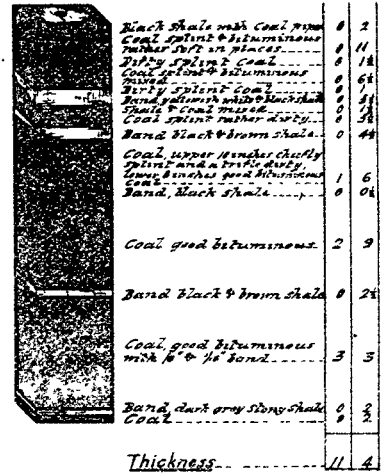 Black Shale with Coal pipes 0 2
Coal splint & bituminous
rather soft in places 0 11
Dirty splint Coal 0 1½
Coal splint & bituminous
mixed 0 6½
Dirty splint Coal 0 1
Band, yellowish white & black shale 0
Shale & Coal mixed 0 1½
Coal splint rather dirty 0
Band black & brown shale 0 4½
Coal, upper 10 inches chiefly
splint and a trifle dirty,
lower 8 inches good bituminous
Coal 1 6
Band, black shale 0 0½
Coal good bituminous 2 9
Band black & brown shale 0 2½
Coal, good bituminous
with & band 3 3
Band, dark grey stony shale 0 2
Coal 0 2
Thickness 11 4